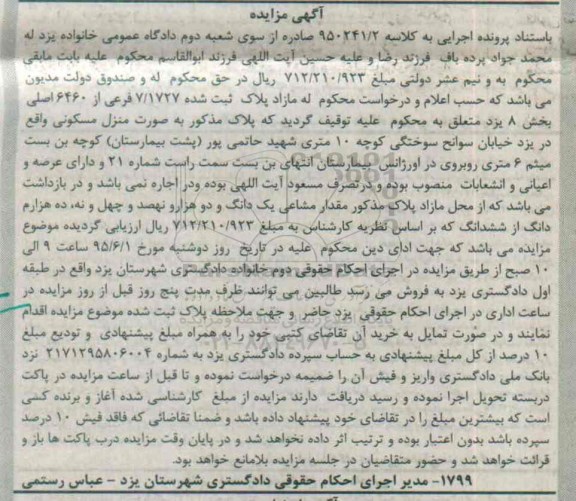 آگهی مزایده
باستناد پرونده اجرایی به کلاسه ۹۵۰۲۴۱/۲ صادره از سوی شعبه دوم دادگاه عمومی خانواده یزد له
محمد جواد پرده باف فرزند رضا و علیه حسین آیت اللهی فرزند ابوالقاسم محکوم علیه بابت مابقی
محکوم به و نیم عشر دولتی مبلغ ۷۱۲/۲۱۰/۹۲۳ ریال در حق محکوم له و صندوق دولت مدیون
می باشد که حسب اعلام و درخواست محکوم له مازاد پلاک ثبت شده ۷/۱۷۲۷ فرعی از ۶۴۶۰ اصلی
بخش ۸ یزد متعلق به محکوم علیه توقیف گردید که پلاک مذکور به صورت منزل مسکونی واقع
در یزد خیابان سوانح سوختگی کوچه ۱۰ متری شهید حاتمی پور (پشت بیمارستان) کوچه بن بست
میثم ۶ متری روبروی در اورژانس بیمارستان انتهای بن بست سمت راست شماره ۲۱ و دارای عرصه و
اعیانی و انشعابات منصوب بوده و درتصرف مسعود آیت اللهی بوده ودر اجاره نمی باشد و در بازداشت
می باشد که از محل مازاد پلاک مذکور مقدار مشاعی یک دانگ و دو هزارو نهصد و چهل و نه، ده هزارم
دانگ از ششدانگ که بر اساس نظریه کارشناس به مبلغ ۷۱۲/۲۱۰/۹۲۳ ریال ارزیابی گردیده موضوع
مزایده می باشد که جهت ادای دین محکوم علیه در تاریخ روز دوشنبه مورخ ۹۵/۶/۱ ساعت ۹ الی
۱۰ صبح از طریق مزایده در اجرای احکام حقوقی دوم خانواده دادگستری شهرستان یزد واقع در طبقه
اول دادگستری یزد به فروش می رسد طالبین می توانند ظرف مدت پنج روز قبل از روز مزایده در
ساعت اداری در اجرای احکام حقوقی یزد حاضر و جهت ملاحظه پلاک ثبت شده موضوع مزایده اقدام
نمایند و در صورت تمایل به خرید آن تقاضای کتبی خود را به همراه مبلغ پیشنهادی و تودیع مبلغ
۱۰ درصد از کل مبلغ پیشنهادی به حساب سپرده دادگستری یزد به شماره ۲۱۷۱۲۹۵۸۰۶۰۰۴ نزد
بانک ملی دادگستری واریز و فیش آن را ضمیمه درخواست نموده و تا قبل از ساعت مزایده در پاکت
دربسته تحویل اجرا نموده و رسید دریافت دارند مزایده از مبلغ کارشناسی شده آغاز و برنده کسی
است که بیشترین مبلغ را در تقاضای خود پیشنهاد داده باشد و ضمنا تقاضائی که فاقد فیش ۱۰ درصد
سپرده باشد بدون اعتبار بوده و ترتیب اثر داده نخواهد شد و در پایان وقت مزایده درب پاکت ها باز و
قرائت خواهد شد و حضور متقاضیان در جلسه مزایده بلامانع خواهد بود.
۱۷۹۹- مدیر اجرای احکام حقوقی دادگستری شهرستان یزد - عباس رستمی